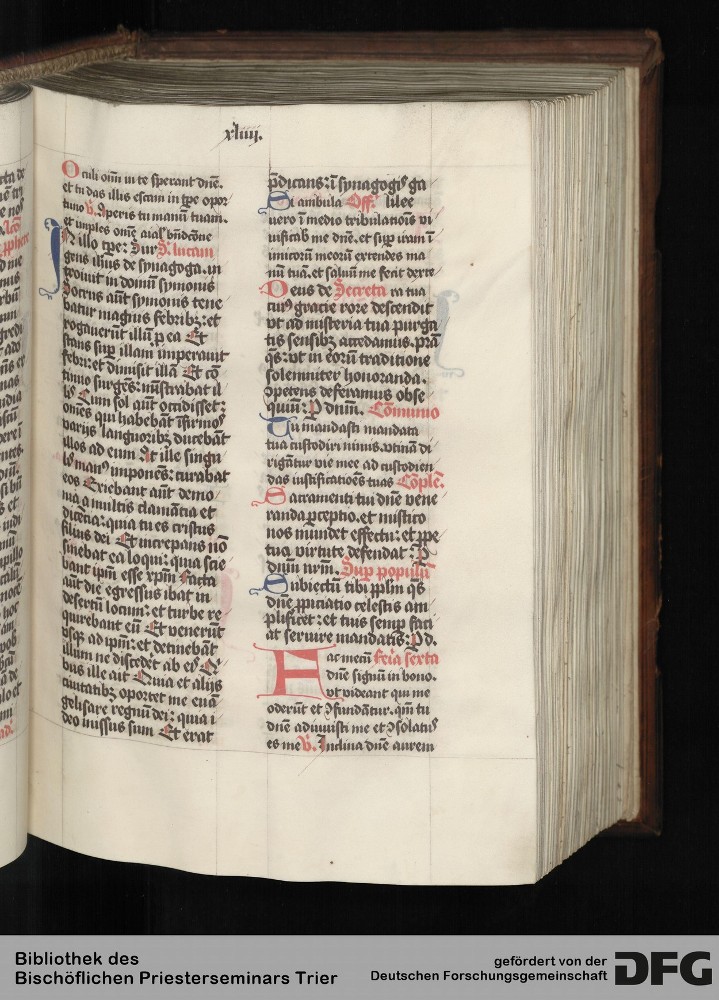 xliiij.
Oculi oim̄ in te sperant dn̄e.
et tu das illis escam in tp̄e opor
tuno v̄. Aperis tu manū tuam.
et imples om̄e aīal bn̄dcōne
In illo tp̄e: Sur S. lucam
gens ihūs de synagoga. in
troiuit in domū symonis
Socrus aūt symonis tene
batur magnis febribꝫ: et
rogauerūt illū ꝓ ea Et
stans sup̄ illam imperauit
febri: et dimisit illā Et cō
tinuo surgēs: mīstrabat il
lis Cum sol aūt occidisset:
om̄es qui habebāt īfirmoˢ
varijs languoribꝫ ducebāt
illos ad eum At ille singu
lis manˢ imponēs: curabat
eos Exiebant aūt demo
nia a multis clamātia et
dicētia: quia tu es cristus
filius dei Et increpans nō
sinebat ea loqui: quia scie
bant ipm̄ esse xpm̄ Facta
aūt die egressus ibat in
desertū locum: et turbe re
quirebant eū Et venerūt
vsqꝫ ad ipm̄: et detinebāt
illum ne discedēt ab eis Qi
bus ille ait Quia et alijs
ciuitatibꝫ oportet me euā
gelisare regnū dei: quia i
deo missus sum Et erat
p̄dicans: ī synagogis ga
Si ambula Off̄. lilee
uero ī medio tribulationis vi
uificab̄ me dn̄e. et sup̄ iram ī
imicorū meorū extendes ma
nū tuā. et saluū me fecit dexte
Deus de Secreta ra tua
cuiˢ gracie rore descendit
vt ad misteria tua purga
tis sensibꝫ accedamus. p̄rā
qs: vt in eorū traditione
solemniter honoranda.
opetens deferamus obse
quiū: P dnm̄. Cōmunio
Tu mandasti mandata
tua custodiri nimis. vtinā di
rigātur vie mee ad custodien
das iustificatiōes tuas Cōple.
Sacramenti tui dn̄e vene
randa ꝑceptio. et mistico
nos mūdet effectu: et ꝑpe
tua virtute defendat: P
dnm̄ nrm̄. Sup populū
Subiectū tibi pplm̄ qs
dn̄e ꝓpiciatio celestis am
plificet: et tuis semꝑ faci
at seruire mandatis: P d.
Fac mecū feria sexta
dn̄e signū in bono.
vt videant qui me
oderūt et ꝯfundātur. qm̄ tu
dn̄e adiuuisti me et ꝯsolatuˢ
es me v̄. Inclina dn̄e aurem
Bibliothek des
Bischöflichen Priesterseminars Trier
gefördert von der
Deutschen Forschungsgemeinschaft
DFG